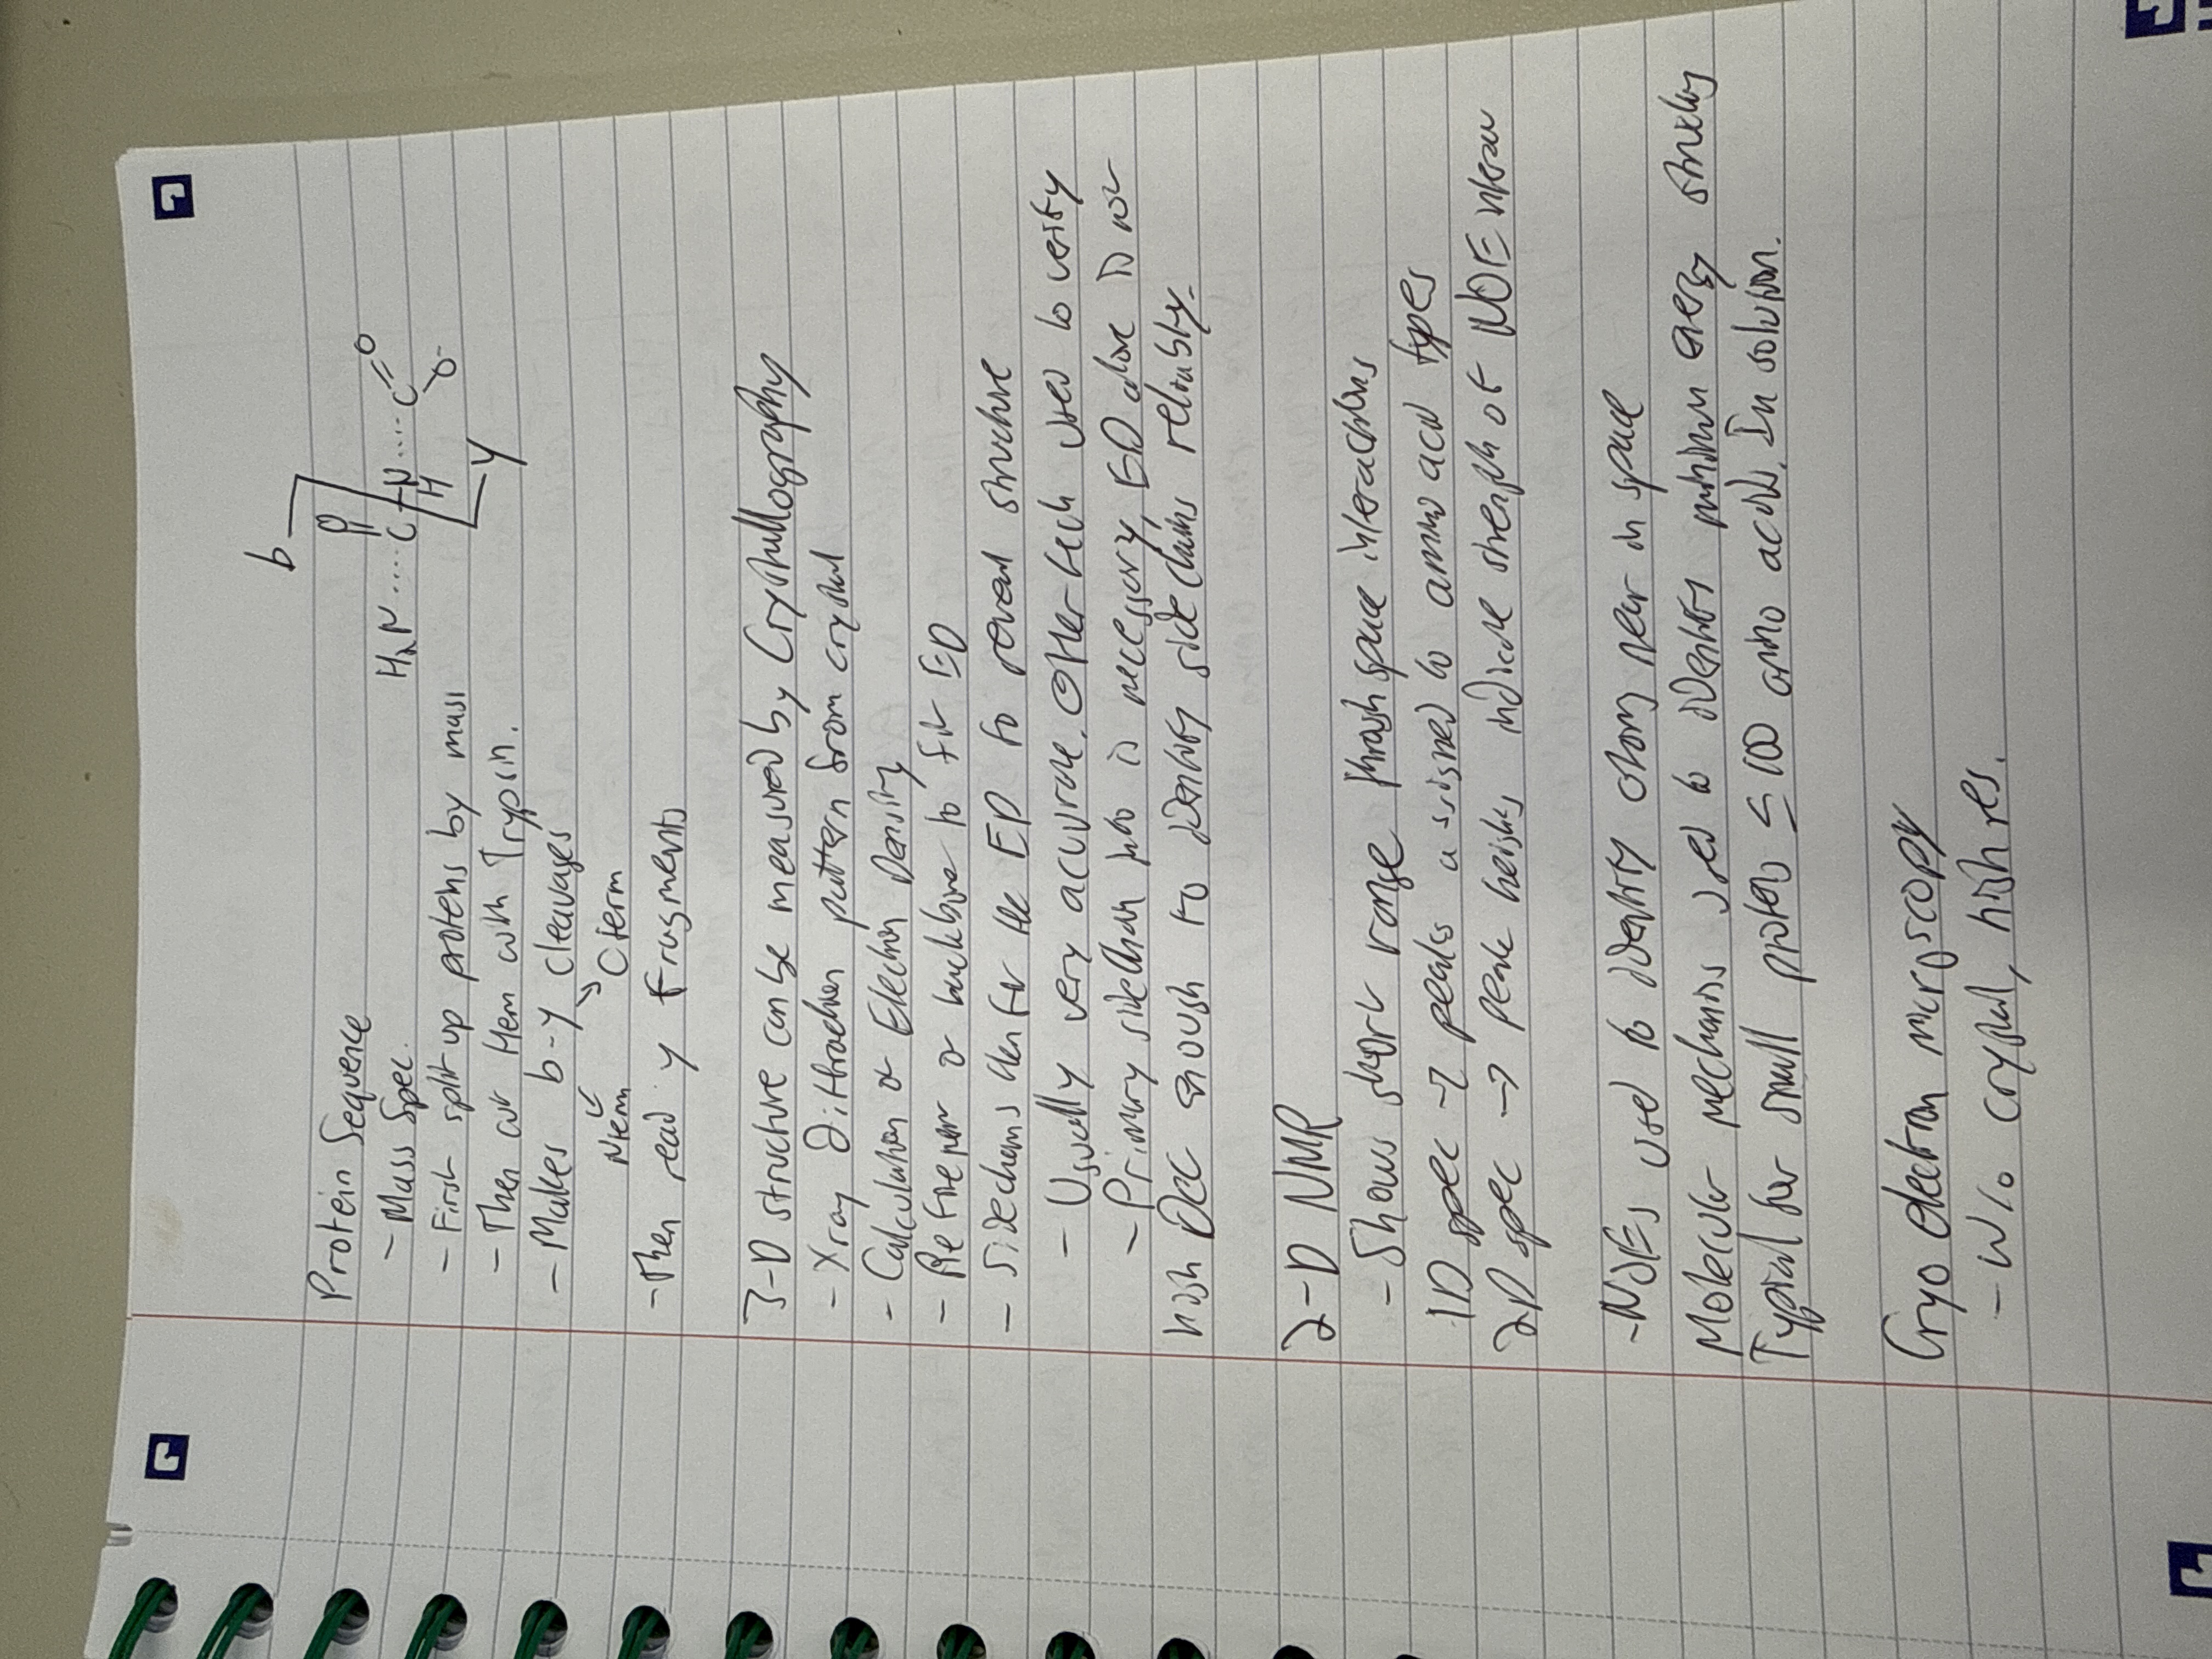 b
O
H₂N.....C-N.....C=O
H
O-
y
Protein Sequence
- Mass Spec.
- First split up proteins by mass
- Then cut them with Trypsin.
- Makes b-y cleavages
Nterm Cterm
- Then read y fragments
3-D structure can be measured by Crystallography
- Xray diffraction pattern from crystal
- Calculation of Electron Density
- Refinement of backbone to fit ED
- Sidechains then fit the ED to reveal structure
- Usually very accurate. Other tech used to verify
- Primary sidechain info is necessary, ED alone is not
high enough to identify side chains reliably.
2-D NMR
- Shows short range through space interactions
1D spec → peaks assigned to amino acid types
2D spec → peak heights indicate strength of NOE interac
- NOEs used to identify atoms near in space
Molecular mechanics used to identify minimum energy structures
Typical for small proteins ≤ 100 amino acids. In solution.
Cryo electron microscopy
- w/o crystal, high res.